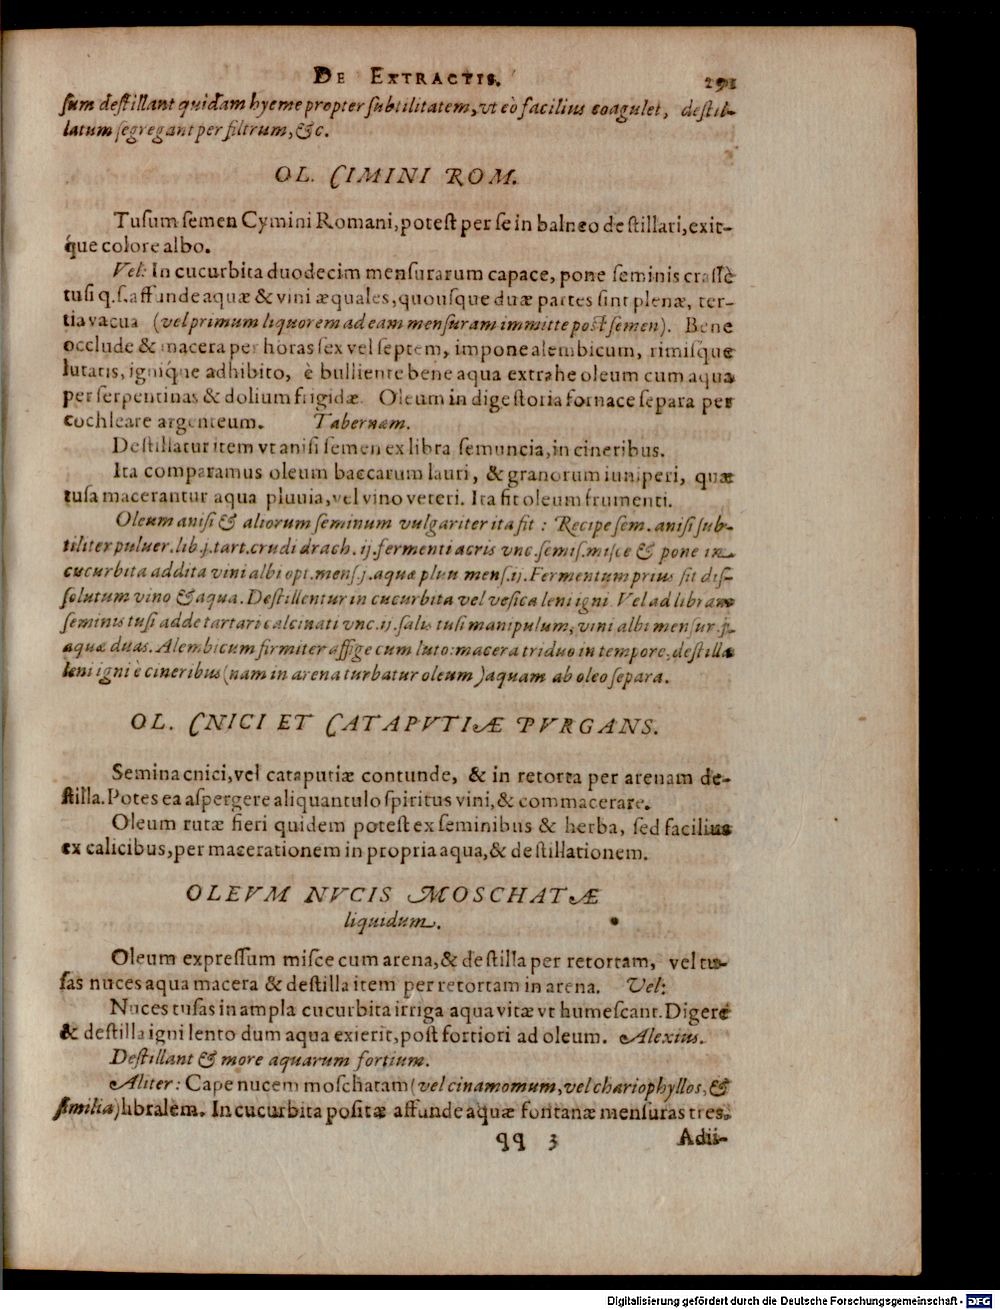 DE EXTRACTIS. 291
sum destillant quidam hyeme propter subtilitatem, vt eò facilius coagulet, destil-
latum segregant per filtrum, &c.
OL. CIMINI ROM.
Tusum semen Cymini Romani, potest per se in balneo destillari, exit-
que colore albo.
Vel: In cucurbita duodecim mensurarum capace, pone seminis crassè
tusi q.s. affunde aquæ & vini æquales, quousque duæ partes sint plenæ, ter-
tia vacua (vel primum liquorem ad eam mensuram immitte post semen). Bene
occlude & macera per horas sex vel septem, impone alembicum, rimisque
lutatis, ignique adhibito, è bulliente bene aqua extrahe oleum cum aqua
per serpentinas & dolium frigidæ. Oleum in digestoria fornace separa per
cochleare argenteum. Tabernæm.
Destillatur item vt anisi semen ex libra semuncia, in cineribus.
Ita comparamus oleum baccarum lauri, & granorum iuniperi, quæ
tusa macerantur aqua pluuia, vel vino veteri. Ita fit oleum frumenti.
Oleum anisi & aliorum seminum vulgariter ita fit: Recipe sem. anisi sub-
tiliter puluer. lib. j. tart. crudi drach. ij. fermenti acris vnc. semis. misce & pone in
cucurbita addita vini albi opt. mens. j. aquæ pluu mens. ij. Fermentum prius sit dis-
solutum vino & aqua. Destillentur in cucurbita vel vesica leni igni. Vel ad libram
seminis tusi adde tartari calcinati vnc. ij. salis tusi manipulum, vini albi mensur. j.
aquæ duas. Alembicum firmiter affige cum luto: macera triduo in tempore, destilla
leni igni è cineribus (nam in arena turbatur oleum) aquam ab oleo separa.
OL. CNICI ET CATAPVTIÆ PVRGANS.
Semina cnici, vel cataputiæ contunde, & in retorta per arenam de-
stilla. Potes ea aspergere aliquantulo spiritus vini, & commacerare.
Oleum rutæ fieri quidem potest ex seminibus & herba, sed facilius
ex calicibus, per macerationem in propria aqua, & destillationem.
OLEVM NVCIS MOSCHATÆ
liquidum.
Oleum expressum misce cum arena, & destilla per retortam, vel tu-
sas nuces aqua macera & destilla item per retortam in arena. Vel:
Nuces tusas in ampla cucurbita irriga aqua vitæ vt humescant. Digere
& destilla igni lento dum aqua exierit, post fortiori ad oleum. Alexius.
Destillant & more aquarum fortium.
Aliter: Cape nucem moschatam (vel cinamomum, vel chariophyllos, &
similia) libralem. In cucurbita positæ affunde aquæ fontanæ mensuras tres.
qq 3 Adii-
Digitalisierung gefördert durch die Deutsche Forschungsgemeinschaft - DFG